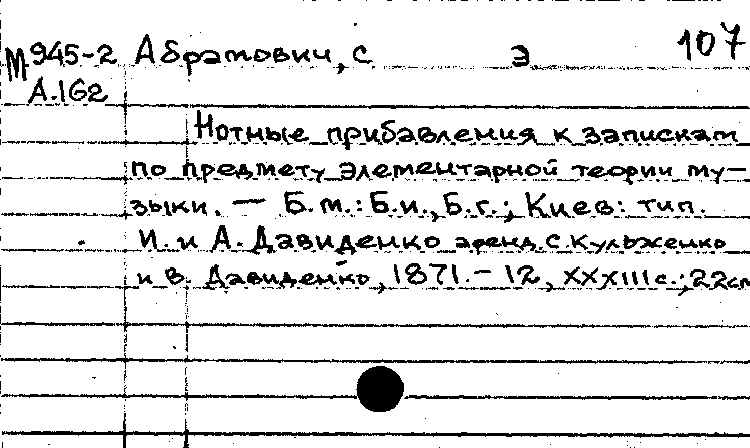 М 945-2 Абрамович, С э 107
А.162
Нотные прибавления к запискам
по предмету элементарной теории му-
зыки. — Б.м.: Б.и., Б.г.; Киев: тип.
И. и А. Давиденко аренд. С. Кульженко
и В. Давиденко, 1871. – 12, XXXIII с.; 22 см